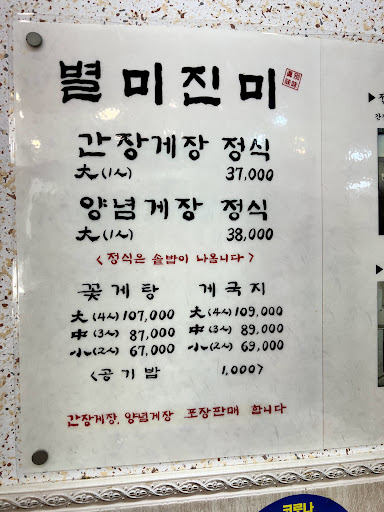 별미진미
간장게장 정식
大(1人) 37,000
양념게장 정식
大(1人) 38,000
<정식은 솥밥이 나옵니다>
꽃게탕
大(4人) 107,000
中(3人) 87,000
小(2人) 67,000
게국지
大(4人) 109,000
中(3人) 89,000
小(2人) 69,000
<공기밥 1,000>
간장게장, 양념게장 포장판매 합니다
코로나